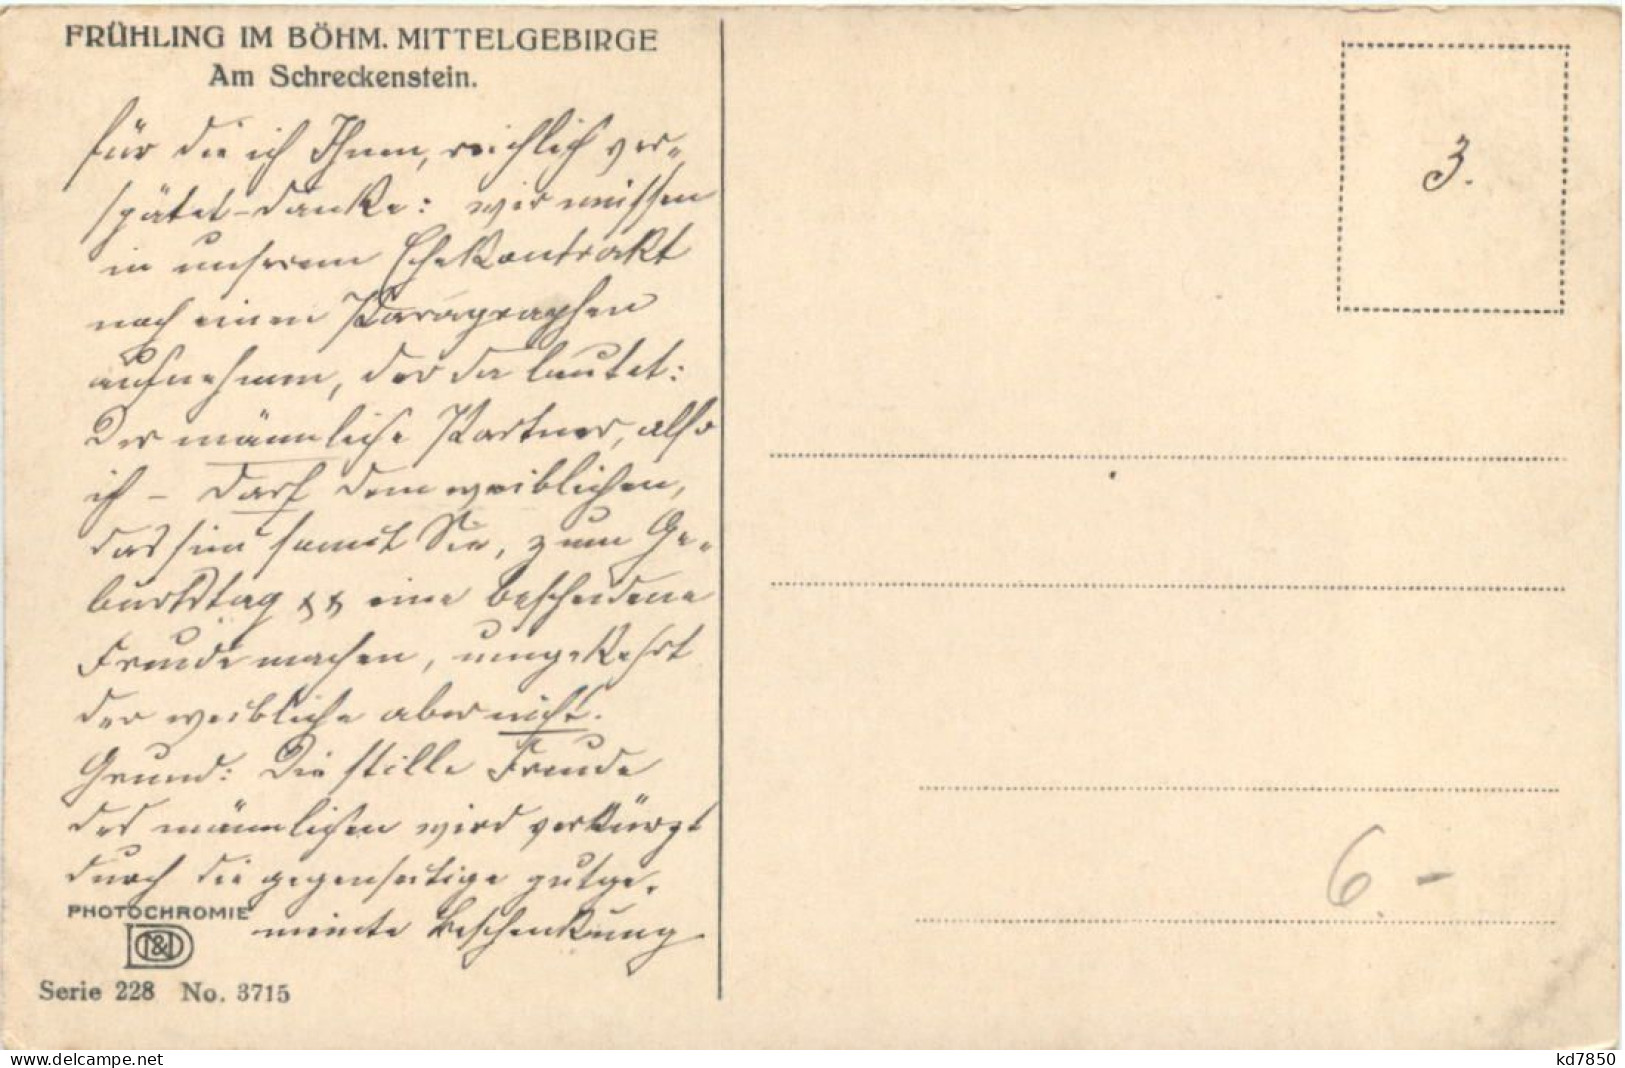 FRÜHLING IM BÖHM. MITTELGEBIRGE
Am Schreckenstein.
für die ich Ihnen, reichlich ver-
spätet-danke: wir müssen
in unserem Ehekontrakt
noch einen Paragraphen
aufnehmen, der da lautet:
Der männliche Partner, also
ich - darf dem weiblichen,
das sind somit Sie, zum Ge-
burtstag eine bescheidene
Freude machen, umgekehrt
der weibliche aber nicht.
Grund: Die stille Freude
des männlichen wird verkürzt
durch die gegenseitige gutge-
meinte Beschenkung
PHOTOCHROMIE
Serie 228 No. 3715
3.
6.-
kd7850
www.delcampe.net